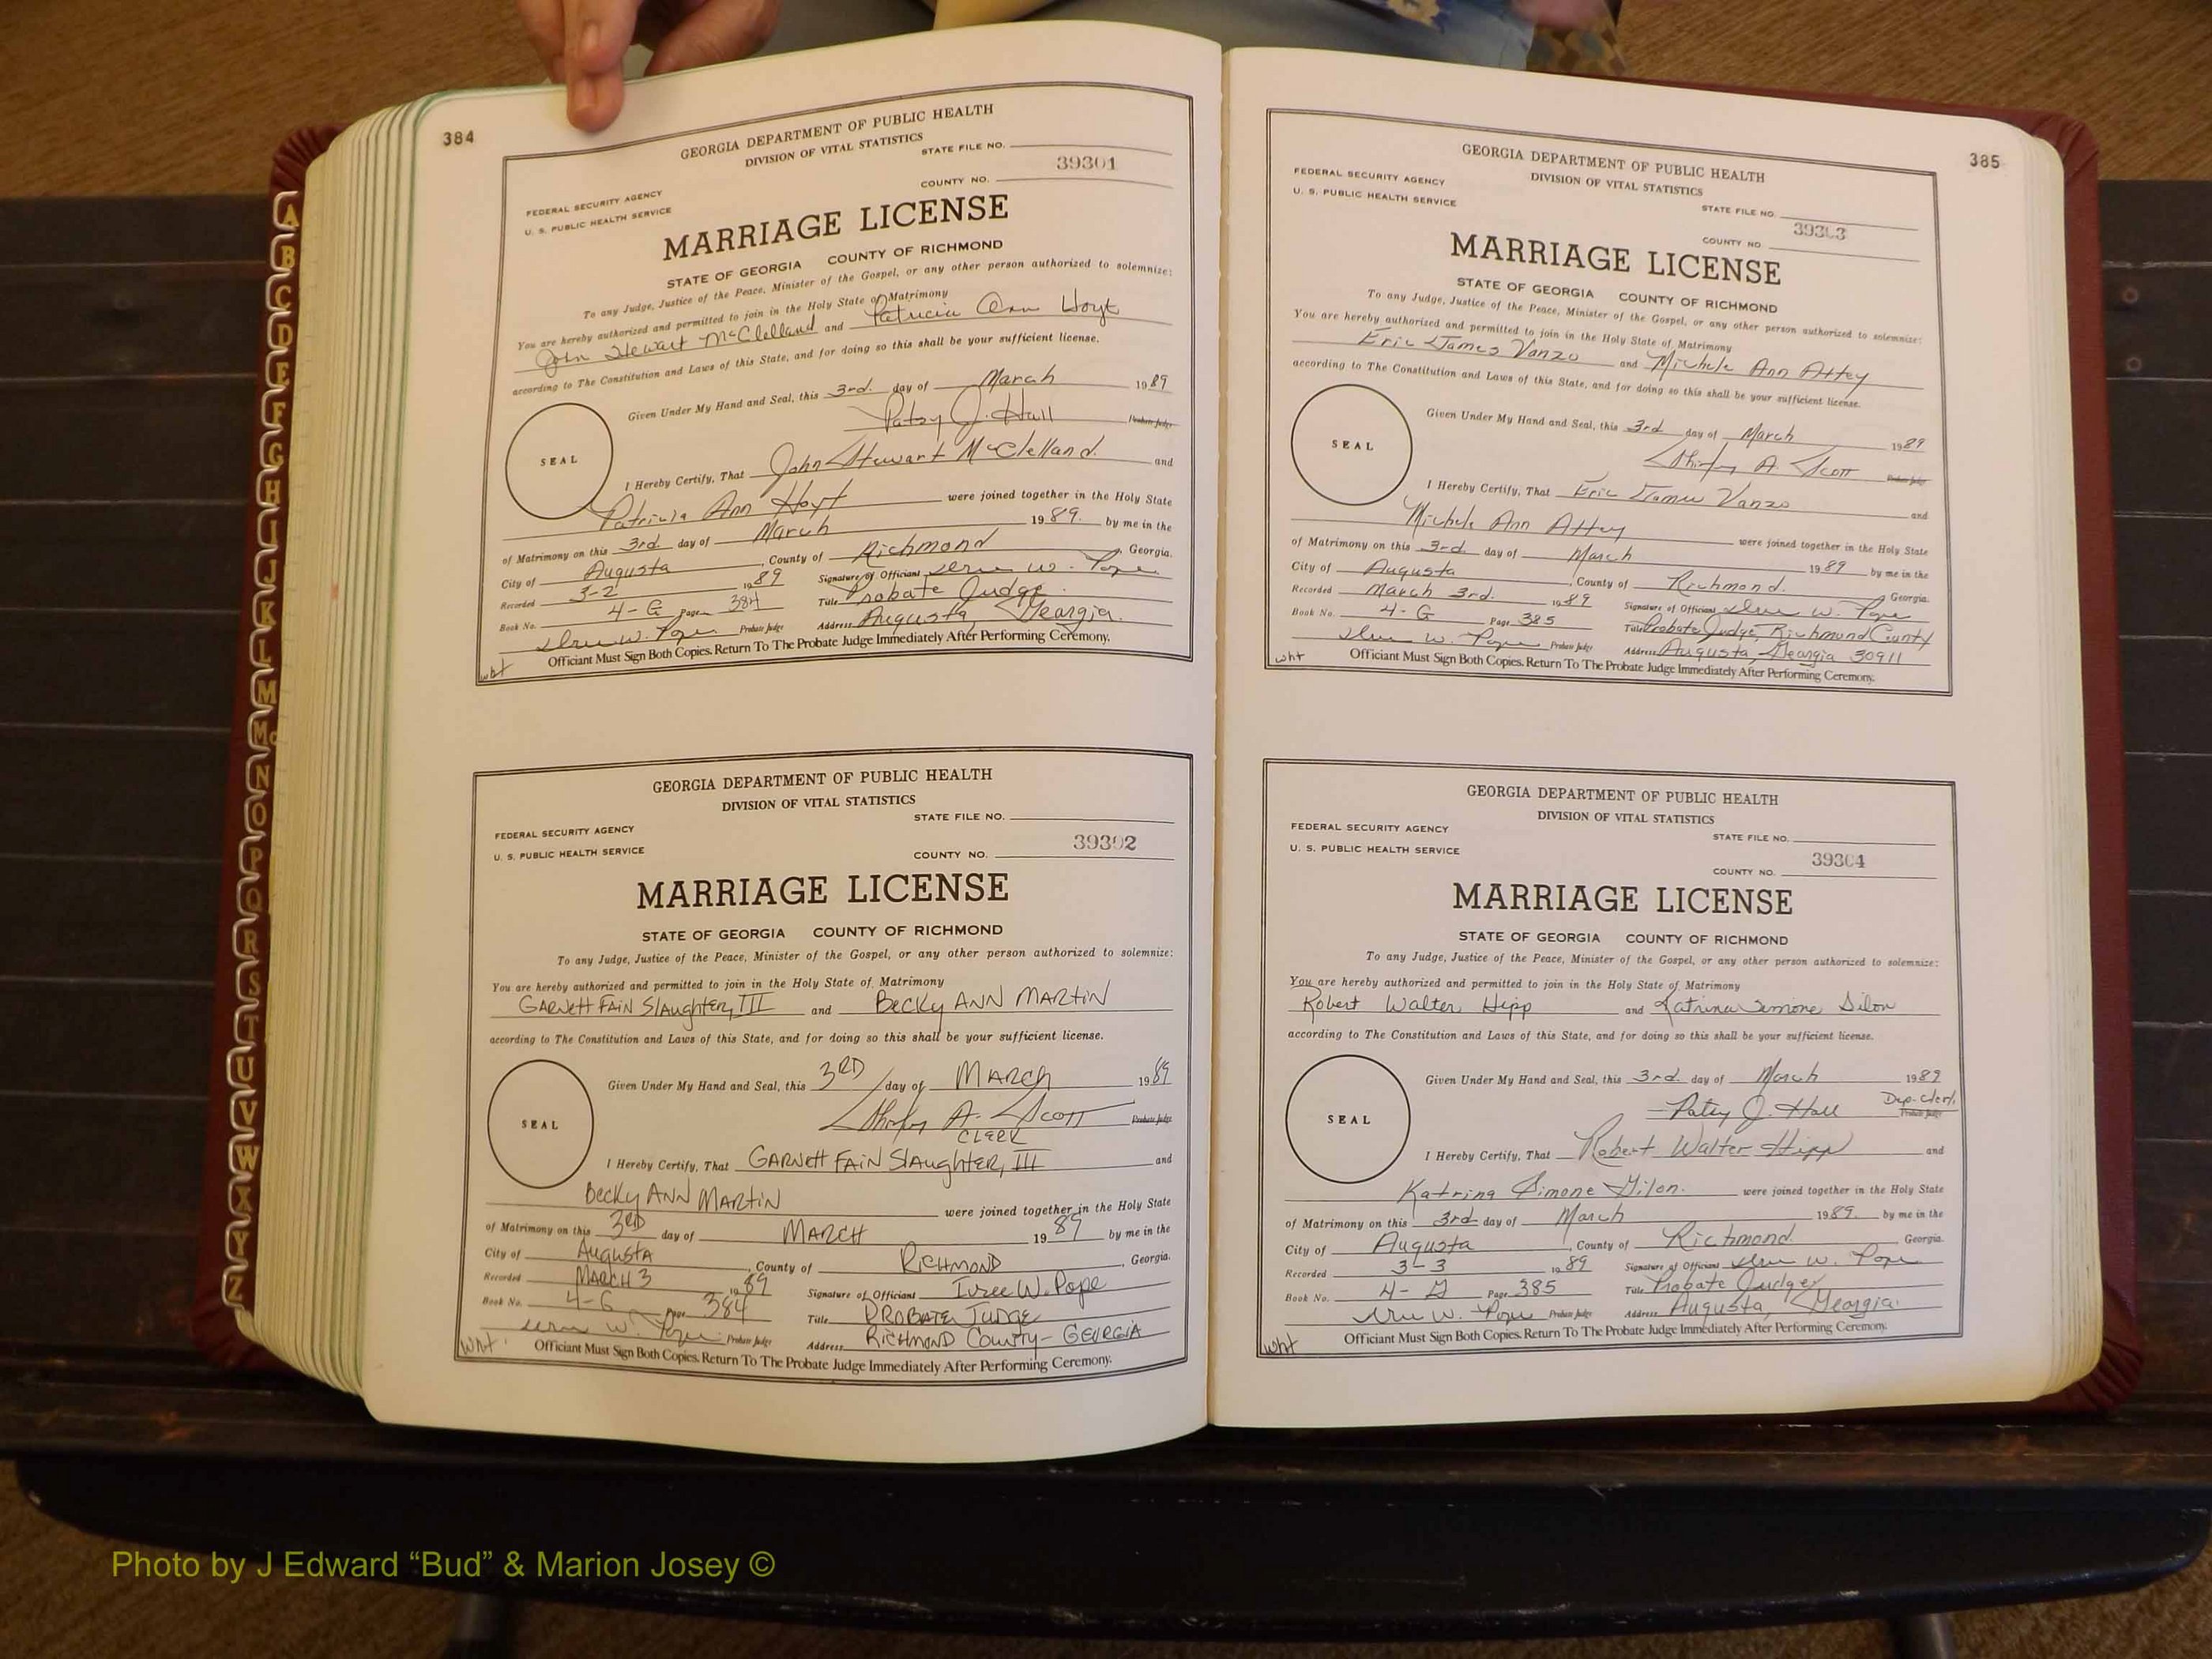 384
GEORGIA DEPARTMENT OF PUBLIC HEALTH
DIVISION OF VITAL STATISTICS
STATE FILE NO.
39301
COUNTY NO.
FEDERAL SECURITY AGENCY
U. S. PUBLIC HEALTH SERVICE
MARRIAGE LICENSE
STATE OF GEORGIA COUNTY OF RICHMOND
To any Judge, Justice of the Peace, Minister of the Gospel, or any other person authorized to solemnize:
You are hereby authorized and permitted to join in the Holy State of Matrimony
John Stewart McClelland and Patricia Ann Hoyt
according to The Constitution and Laws of this State, and for doing so this shall be your sufficient license.
Given Under My Hand and Seal, this 3rd. day of March 1989
Patsy J. Hall Probate Judge
SEAL
I Hereby Certify, That John Stewart McClelland. and
Patricia Ann Hoyt were joined together in the Holy State
of Matrimony on this 3rd. day of March 1989. by me in the
City of Augusta, County of Richmond, Georgia.
Recorded 3-2 1989 Signature of Officiant W. Pope
Book No. 4-G Page 384 Title Probate Judge.
W. Pope Probate Judge Address Augusta, Georgia.
Officiant Must Sign Both Copies. Return To The Probate Judge Immediately After Performing Ceremony.
wht
GEORGIA DEPARTMENT OF PUBLIC HEALTH
DIVISION OF VITAL STATISTICS
STATE FILE NO.
39302
COUNTY NO.
FEDERAL SECURITY AGENCY
U. S. PUBLIC HEALTH SERVICE
MARRIAGE LICENSE
STATE OF GEORGIA COUNTY OF RICHMOND
To any Judge, Justice of the Peace, Minister of the Gospel, or any other person authorized to solemnize:
You are hereby authorized and permitted to join in the Holy State of Matrimony
GARNett FAiN SlAughtER, III and BEcky ANN MARTiN
according to The Constitution and Laws of this State, and for doing so this shall be your sufficient license.
Given Under My Hand and Seal, this 3RD day of MARCH 1989
Shirley A. Scott Probate Judge
CLERK
SEAL
I Hereby Certify, That GARNett FAiN SlAughtER, III and
BEcky ANN MARTiN were joined together in the Holy State
of Matrimony on this 3RD day of MARCH 1989 by me in the
City of Augusta, County of RICHMOND, Georgia.
Recorded MARCH 3 1989 Signature of Officiant W. Pope
Book No. 4-G Page 384 Title PROBATE JUDGE
W. Pope Probate Judge Address RICHMOND COUNTY - GEORGIA
Officiant Must Sign Both Copies. Return To The Probate Judge Immediately After Performing Ceremony.
wht
385
GEORGIA DEPARTMENT OF PUBLIC HEALTH
DIVISION OF VITAL STATISTICS
STATE FILE NO.
39303
COUNTY NO
FEDERAL SECURITY AGENCY
U. S. PUBLIC HEALTH SERVICE
MARRIAGE LICENSE
STATE OF GEORGIA COUNTY OF RICHMOND
To any Judge, Justice of the Peace, Minister of the Gospel, or any other person authorized to solemnize:
You are hereby authorized and permitted to join in the Holy State of Matrimony
Eric James Vanzo and Michele Ann Attey
according to The Constitution and Laws of this State, and for doing so this shall be your sufficient license.
Given Under My Hand and Seal, this 3rd day of March 1989
Shirley A. Scott Probate Judge
SEAL
I Hereby Certify, That Eric James Vanzo and
Michele Ann Attey were joined together in the Holy State
of Matrimony on this 3rd. day of March 1989 by me in the
City of Augusta, County of Richmond. Georgia.
Recorded March 3rd. 1989 Signature of Officiant W. Pope
Book No. 4-G Page 385 Title Probate Judge, Richmond County
W. Pope Probate Judge Address Augusta, Georgia 30911
Officiant Must Sign Both Copies. Return To The Probate Judge Immediately After Performing Ceremony.
wht
GEORGIA DEPARTMENT OF PUBLIC HEALTH
DIVISION OF VITAL STATISTICS
STATE FILE NO.
39304
COUNTY NO.
FEDERAL SECURITY AGENCY
U. S. PUBLIC HEALTH SERVICE
MARRIAGE LICENSE
STATE OF GEORGIA COUNTY OF RICHMOND
To any Judge, Justice of the Peace, Minister of the Gospel, or any other person authorized to solemnize:
You are hereby authorized and permitted to join in the Holy State of Matrimony
Robert Walter Hipp and Katrina Simone
according to The Constitution and Laws of this State, and for doing so this shall be your sufficient license.
Given Under My Hand and Seal, this 3rd. day of March 1989
Patsy J. Hall Dep. Clerk
Probate Judge
SEAL
I Hereby Certify, That Robert Walter Hipp and
Katrina Simone were joined together in the Holy State
of Matrimony on this 3rd day of March 1989. by me in the
City of Augusta, County of Richmond, Georgia.
Recorded 3-3 1989 Signature of Officiant W. Pope
Book No. 4-G Page 385 Title Probate Judge
W. Pope Probate Judge Address Augusta, Georgia.
Officiant Must Sign Both Copies. Return To The Probate Judge Immediately After Performing Ceremony.
wht
A
B
C
D
E
F
G
H
I
J
K
L
M
Mc
N
O
P
Q
R
S
T
U
V
W
X
Y
Z
Photo by J Edward “Bud” & Marion Josey ©